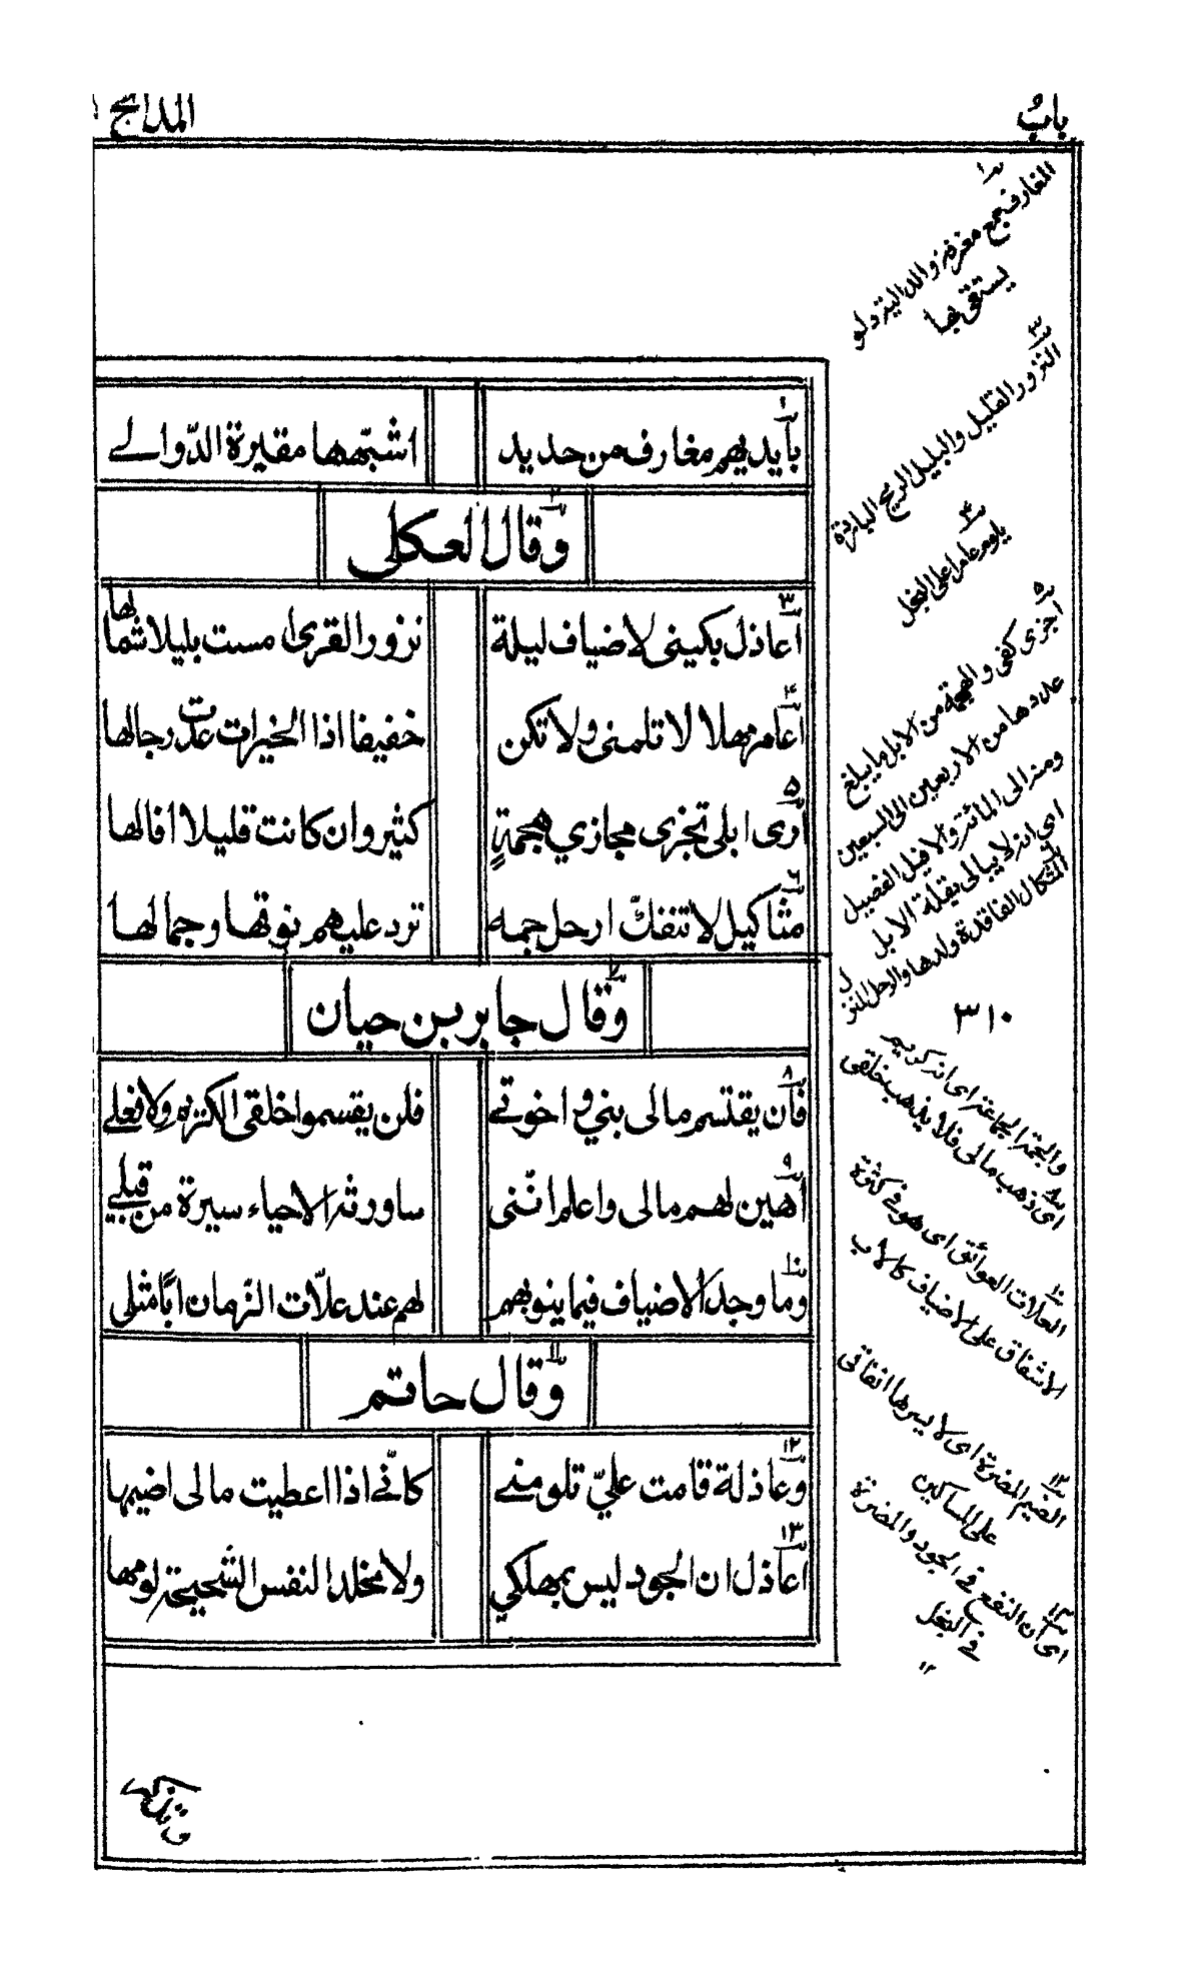 باب المدائح
بأيديهم مغارف من حديد اشبّهها مقيرة الدّوالے
وقال العكلى
اعاذل بكينى لاضياف ليلة نزور القرى امست بليلا شمالها
اعامر مهلا لا تلمنى ولا تكن خفيفا اذا الخيرات عدت رجالها
ارى ابلى تجزى مجازي هجمةٍ كثير وان كانت قليلا افالها
مثاكيل لا تنفكّ ارحل جمه ترد عليهم نوقها وجمالها
وقال جابر بن حيان
فان يقتسم مالى بني و اخوتے فلن يقسموا خلقى الكريم ولا فعلے
اهين لهم مالى واعلم انّنى ساورثه الاحياء سيرة من قبلے
وما وجد الاضياف فيما ينوبهم لهم عند علّات الزمان ابًا مثلى
وقال حاتم
وعاذلة قامت عليّ تلومنے كانّے اذا اعطيت مالى اضيمها
اعاذل ان الجود ليس بمهلكي ولا مخلد النفس الشحيحة لومها
المغارف جمع مغرفة والدالية دلو
يستقى بها
النزور القليل والبليل الريح الباردة
يا عامر على البخل
اجزى كفى والهجمة من الابل ما يبلغ
عددها من الاربعين الى السبعين
ومنه الى المائة والافيل الفصيل
اى انه لا يبالى بقلة الابل
الثكال الفاقدة ولدها والرحل المنزل
٣١٠
والجمة الجماعة اى انه كريم
اى ذهب مالى فلا يذهب خلقى
العلات العوائق اى هو فے كثرة
الاشفاق على الاضياف كالاب
الضيم المضرة اى لا يسرها انفاقى
على المساكين
اى ان النفع فے الجود والمضرة
فے البخل
١٢